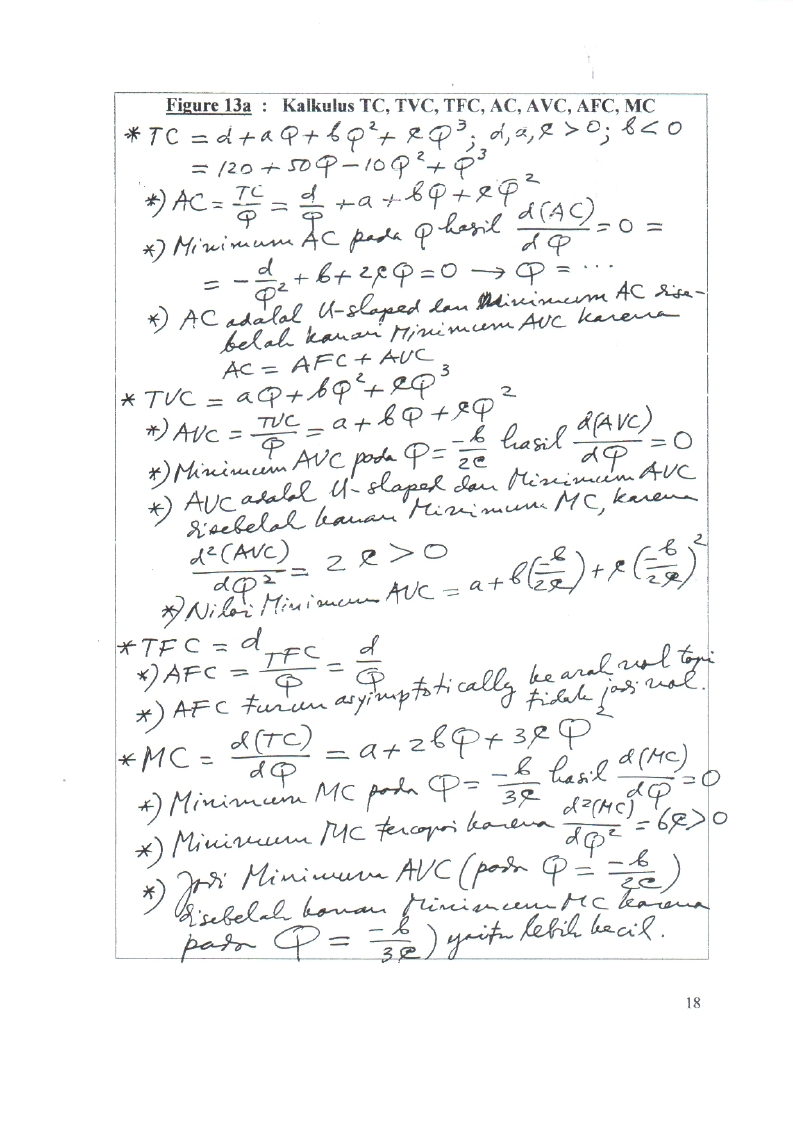 Figure 13a : Kalkulus TC, TVC, TFC, AC, AVC, AFC, MC
* TC = d + aQ + bQ² + eQ³; d, a, e > 0; b < 0
= 120 + 50Q – 10Q² + Q³
*) AC = TC/Q = d/Q + a + bQ + eQ²
*) Minimum AC pada Q hasil d(AC)/dQ = 0 =
= – d/Q² + b + 2eQ = 0 → Q = ...
*) AC adalah U-shaped dan Minimum AC dise-
belah kanan Minimum AVC karena
AC = AFC + AVC
* TVC = aQ + bQ² + eQ³
*) AVC = TVC/Q = a + bQ + eQ²
*) Minimum AVC pada Q = –b/2e hasil d(AVC)/dQ = 0
*) AVC adalah U-shaped dan Minimum AVC
disebelah kanan Minimum MC, karena
d²(AVC)/dQ² = 2e > 0
*) Nilai Minimum AVC = a + b(–b/2e) + e(–b/2e)²
* TFC = d
*) AFC = TFC/Q = d/Q
*) AFC turun asyimptotically ke arah nol tapi
tidak jadi nol.
* MC = d(TC)/dQ = a + 2bQ + 3eQ²
*) Minimum MC pada Q = –b/3e hasil d(MC)/dQ = 0
*) Minimum MC tercapai karena d²(MC)/dQ² = 6e > 0
*) Jadi Minimum AVC (pada Q = –b/2e)
disebelah kanan Minimum MC karena
pada Q = –b/3e) yaitu lebih kecil.
18